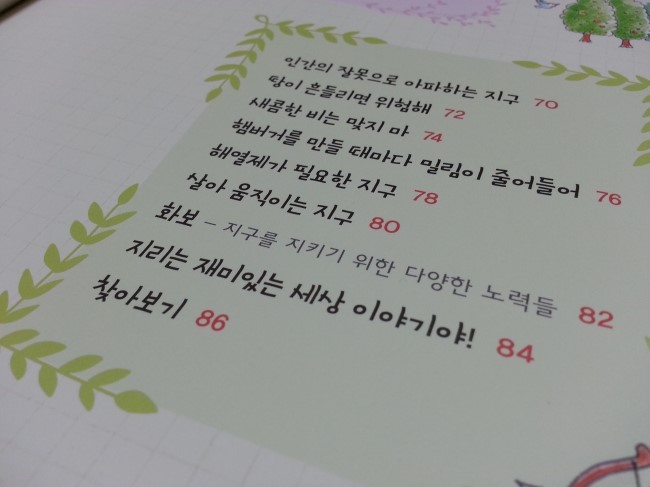 인간의 잘못으로 아파하는 지구 70
땅이 흔들리면 위험해 72
새콤한 비는 맞지 마 74
햄버거를 만들 때마다 밀림이 줄어들어 76
해열제가 필요한 지구 78
살아 움직이는 지구 80
화보 – 지구를 지키기 위한 다양한 노력들 82
지리는 재미있는 세상 이야기야! 84
찾아보기 86